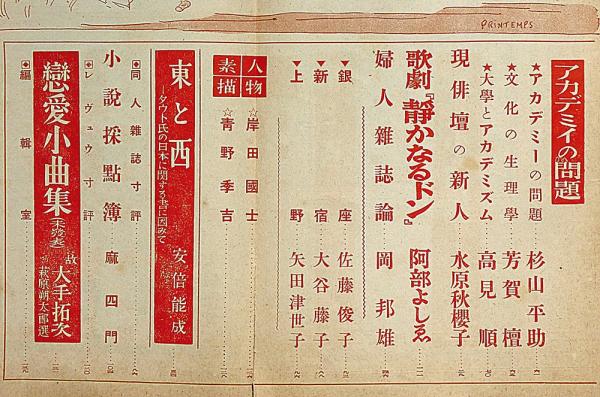 PRINTEMPS
アカデミイの問題
★アカデミーの問題……杉山平助
★文化の生理學……芳賀檀
★大學とアカデミズム……高見順
現俳壇の新人……水原秋櫻子
歌劇『靜かなるドン』……阿部よしゑ
婦人雜誌論……岡邦雄
▼銀座……佐藤俊子
▼新宿……大谷藤子
▼上野……矢田津世子
人物素描
☆岸田國士
☆靑野季吉
東と西
―タウト氏の日本に關する書に因みて
安倍能成
◆同人雜誌寸評
小說採點簿……麻四門
◆レヴュウ寸評
戀愛小曲集(未發表)
故大手拓次
萩原朔太郎選
◆編輯室